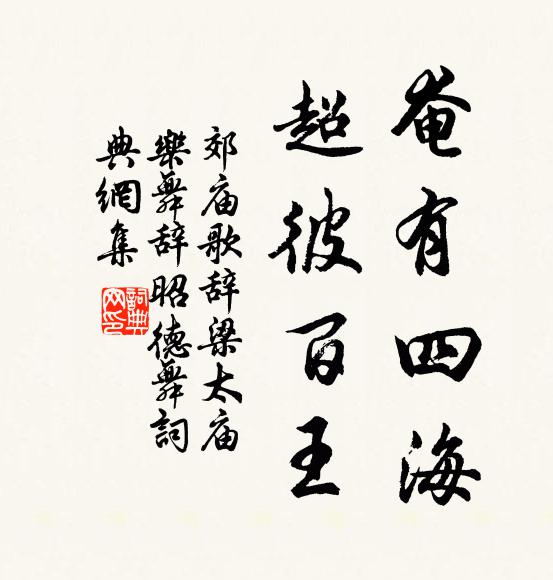 奄有四海
超彼百王
郊庙歌辞梁太庙
樂舞辞昭德舞詞
典網集
詞典网印